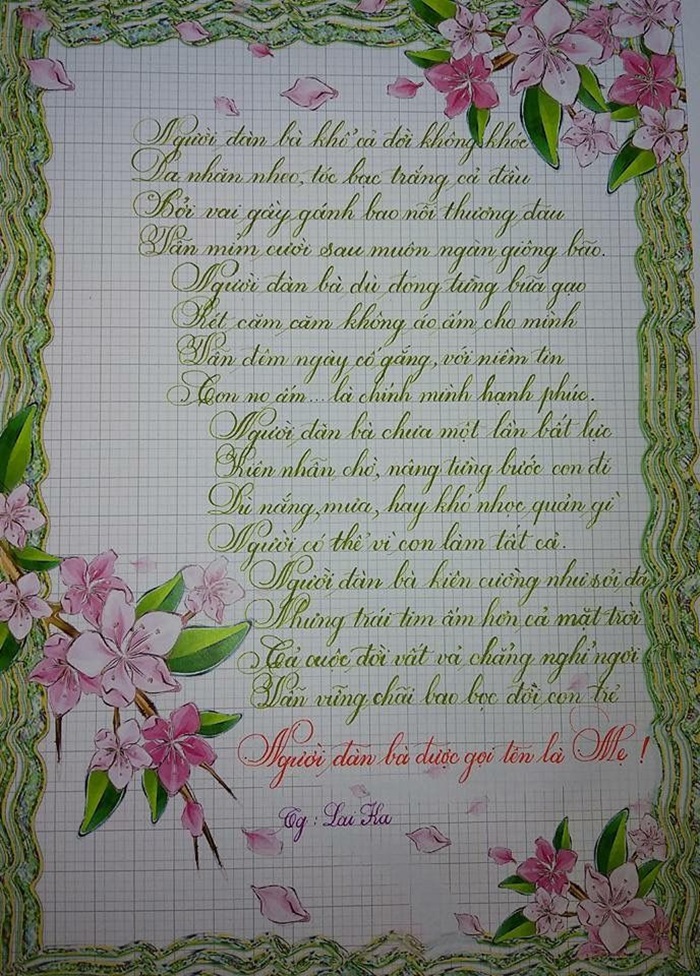 Người đàn bà khổ cả đời không khóc
Da nhăn nheo, tóc bạc trắng cả đầu
Bởi vai gầy gánh bao nỗi thương đau
Vẫn mỉm cười sau muôn ngàn giông bão.
Người đàn bà dù đong từng bữa gạo
Rét căm căm không áo ấm cho mình
Vẫn đêm ngày cố gắng, với niềm tin
Con no ấm... là chính mình hạnh phúc.
Người đàn bà chưa một lần bất lực
Kiên nhẫn chờ, nâng từng bước con đi
Dù nắng, mưa, hay khó nhọc quản gì
Người có thể vì con làm tất cả.
Người đàn bà kiên cường như sỏi đá
Nhưng trái tim ấm hơn cả mặt trời
Cả cuộc đời vất vả chẳng nghỉ ngơi
Vẫn vững chãi bao bọc đời con trẻ
Người đàn bà được gọi tên là Mẹ !
Tg : Lai Ka